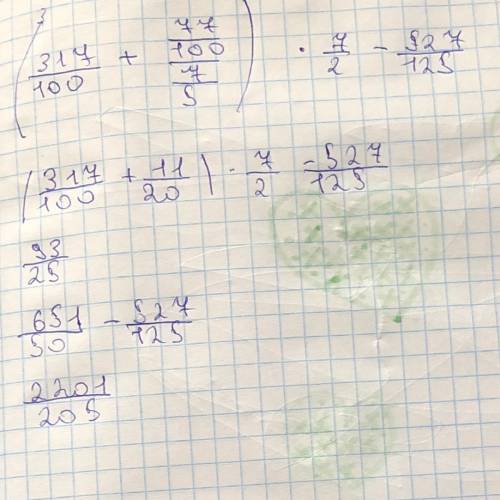 (317/100 + 77/100 / 7/5) · 7/2 - 527/125
(317/100 + 11/20) · 7/2 - 527/125
93/25
651/50 - 527/125
2201/205